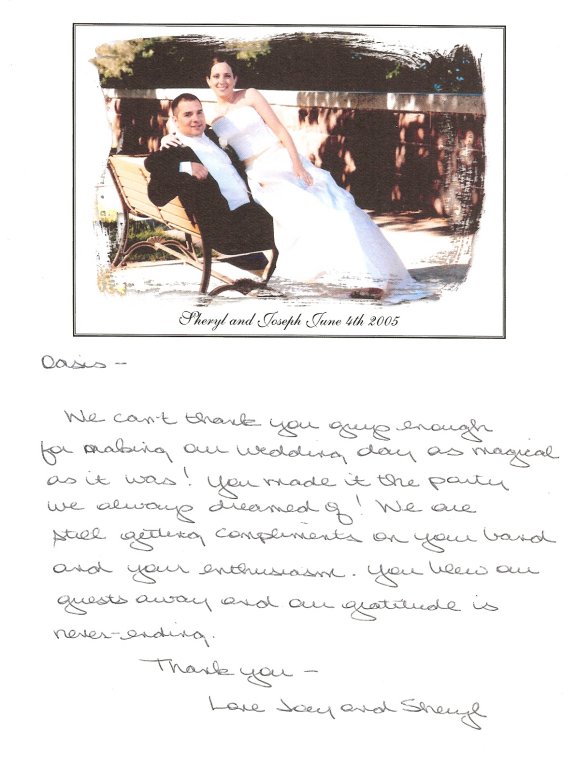 Sheryl and Joseph June 4th 2005
Oasis –
We can't thank you guys enough
for making our wedding day as magical
as it was! You made it the party
we always dreamed of! We are
still getting compliments on your band
and your enthusiasm. You blew our
guests away and our gratitude is
never-ending.
Thank you –
Love Joey and Sheryl